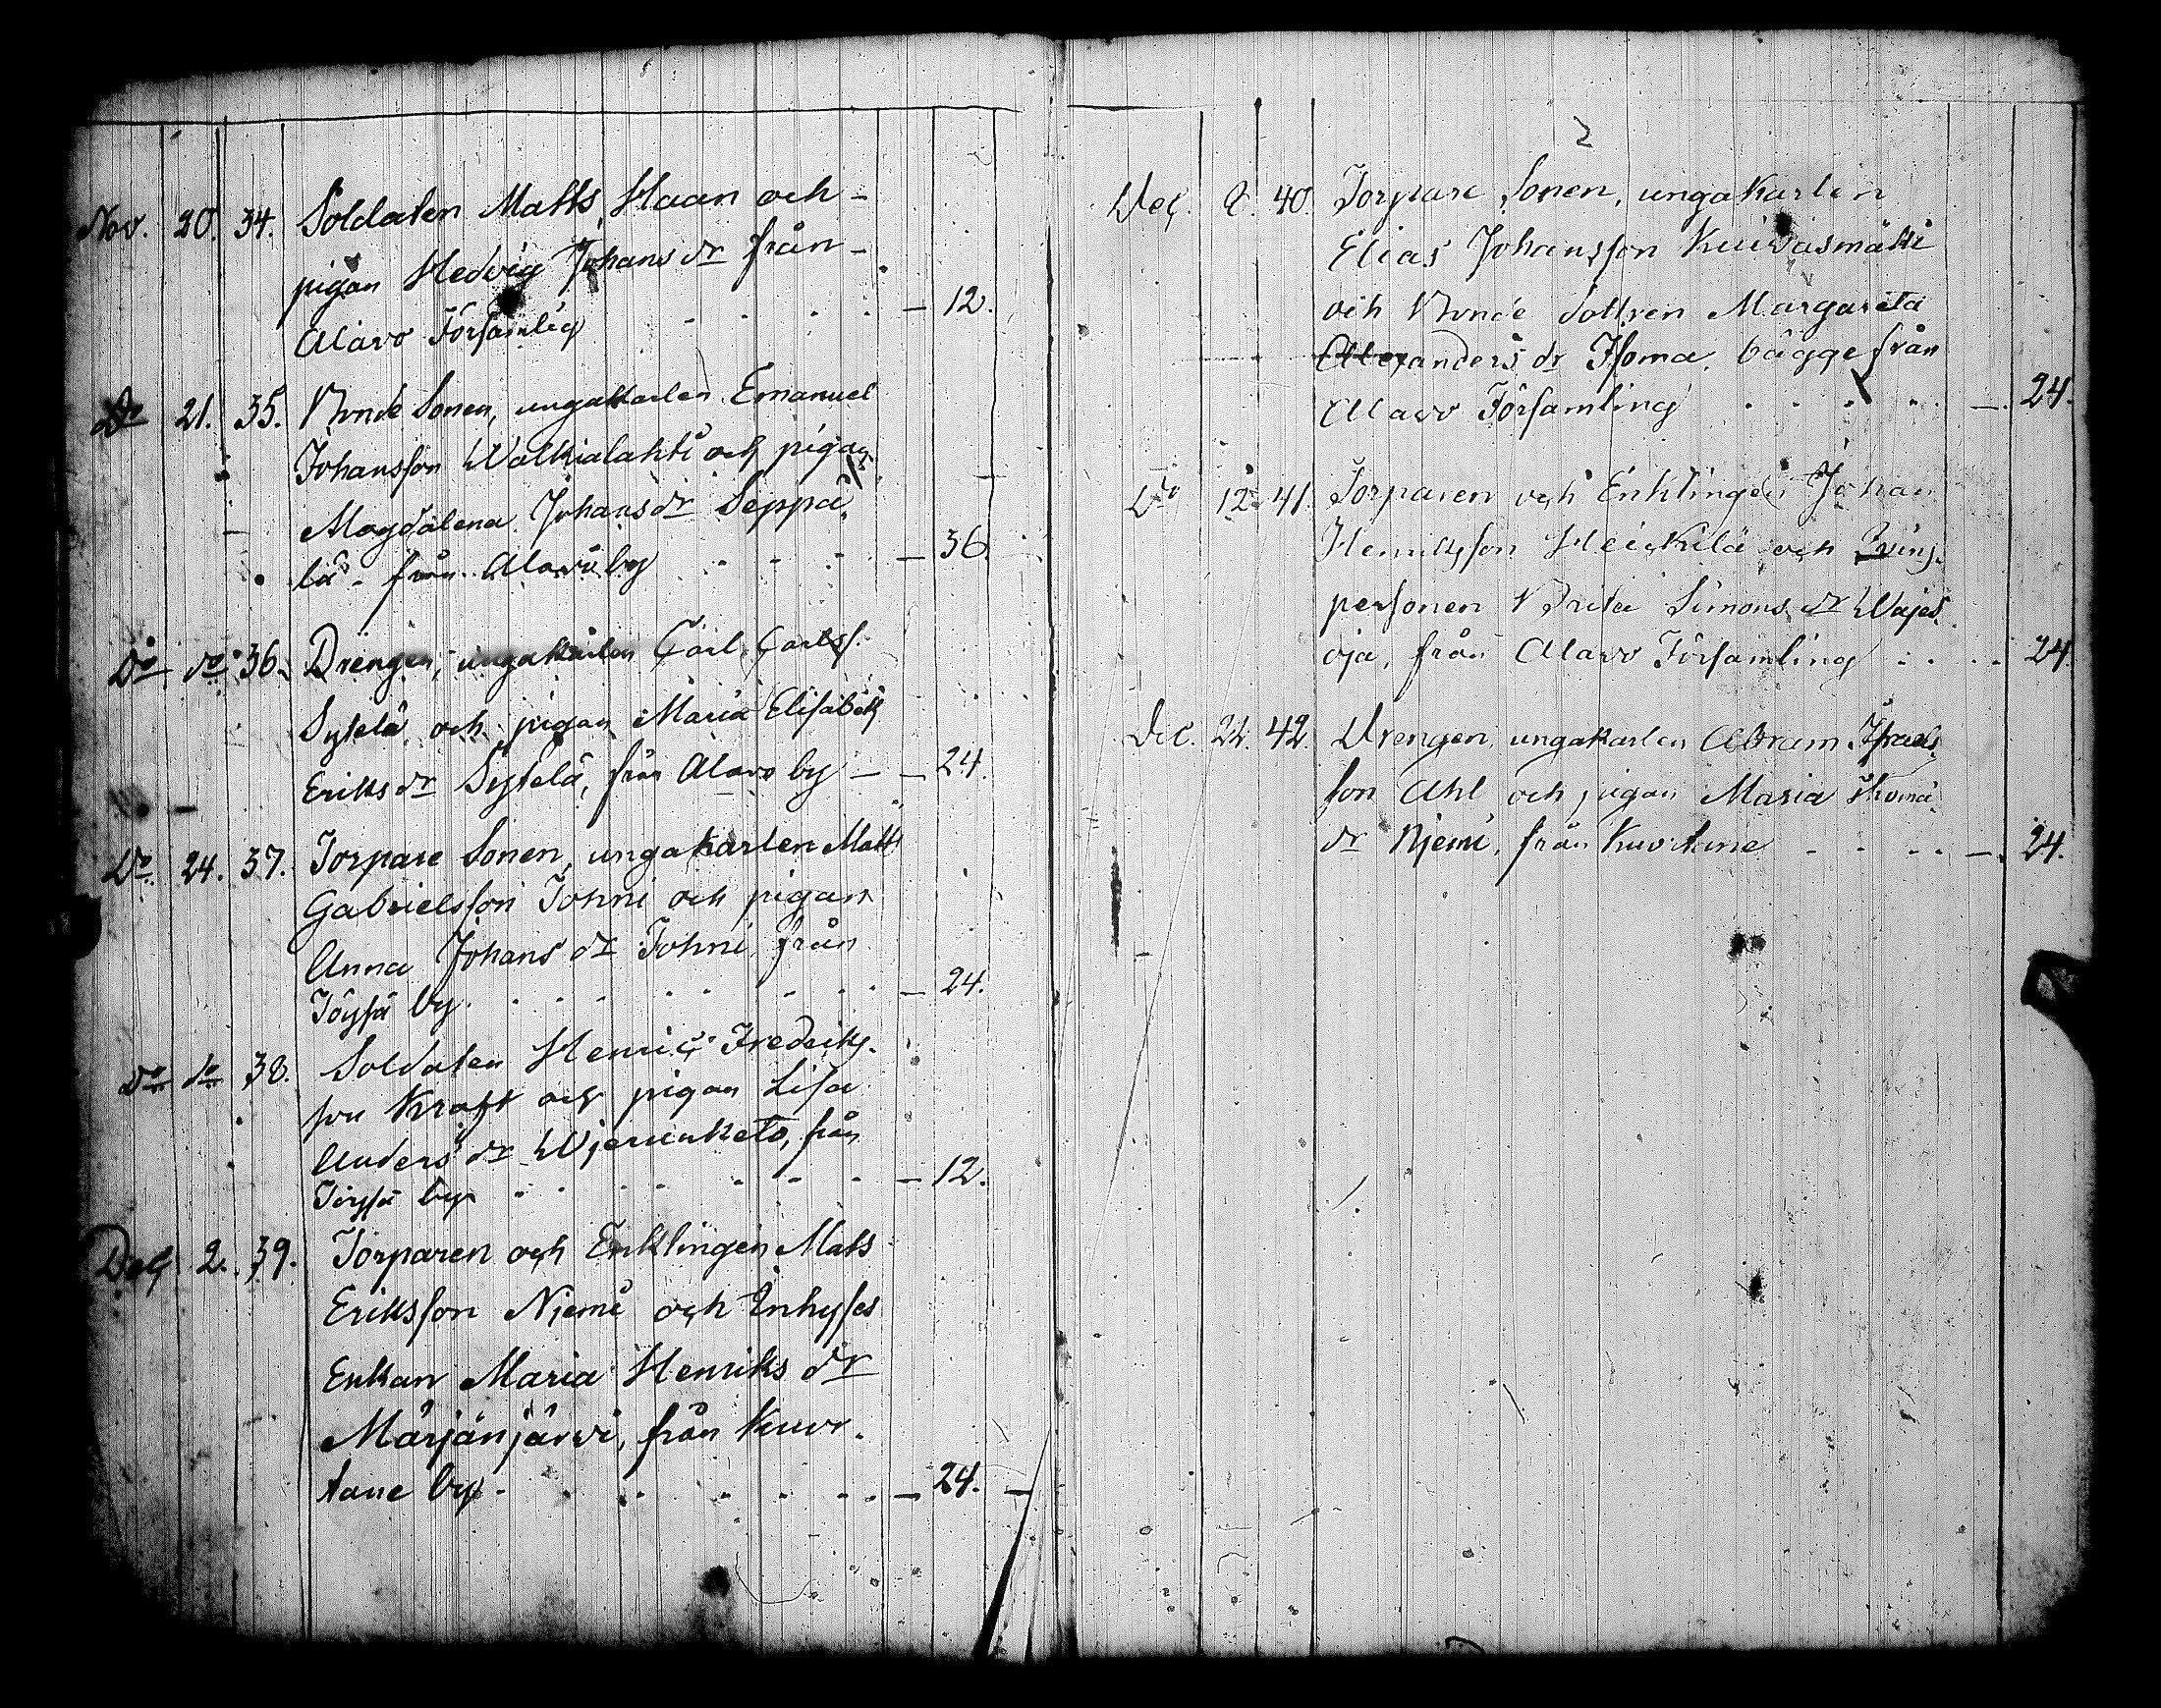 Nov. 20. 34. Soldaten Matts Haan och -
pigan Hedvig Johans dr från -
Alavo Församlig . . . . — 12.
Do 21. 35. Bonde Sonen, ungakarlen Emanuel
Johansson Walkialahti och pigan
Magdalena Johansdr Seppä-
lä - från Alavo by . . . . — 36.
Do do 36. Drengen, ungakarlen Carl Carlss.
Sytelä och pigan Maria Elisabeth
Eriks dr Sytelä, från Alavo by — — 24.
Do 24. 37. Torpare Sonen, ungakarlen Matts
Gabrielsson Tohni och pigan
Anna Johans dr Tohni från
Töysä by . . . . . . . . — 24.
Do do 38. Soldaten Henric Fredriks-
son Kraft och pigan Lisa
Anders dr från
Töysä by . . . . . . . — 12.
Dec 2. 39. Torparen och Enklingen Mats
Eriksson Niemi och Inhyses
Enkan Maria Henriks dr
Märjänjärvi, från Kuor-
tane by - . . . . . . . — 24. —
2
Dec. 8. 40. Torpare Sonen, ungakarlen
Elias Johansson Kuivasmäki
och Bonde dottren Margareta
Alexanders dr Isoma, bägge från
Alavo Församling . . . . . — 24.
Do 12. 41. Torparen och Enklingen Johan
Henriksson Heickilä och
personen Brita Simons dr Wajes-
oja, från Alavo Församling . . . . 24
Dec. 22. 42. Drengen, ungakarlen Abram Israels
son Ahl och pigan Maria Thomæ
dr Njemi, från Kuortane . . . . — 24.